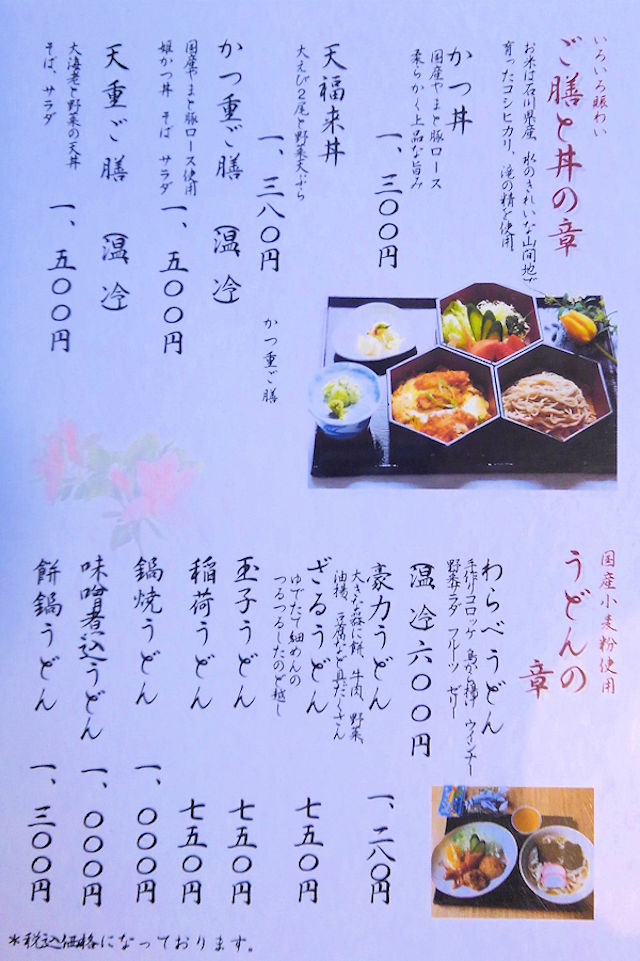 いろいろ賑わい
ご膳と丼の章
お米は石川県産 水のきれいな山間地で
育ったコシヒカリ、滝の精を使用
かつ丼
国産やまと豚ロース
柔らかく上品な旨み
一、三〇〇円
天福来丼
大えび2尾と野菜天ぷら
一、三八〇円
かつ重ご膳 (温 冷)
国産やまと豚ロース使用
姫かつ丼 そば サラダ
一、五〇〇円
天重ご膳 (温 冷)
大海老と野菜の天丼
そば、サラダ
一、五〇〇円
かつ重ご膳
国産小麦粉使用
うどんの
章
わらべうどん
手作りコロッケ 鳥から揚げ ウインナー
野菜サラダ フルーツ ゼリー
(温 冷) 六〇〇円
豪力うどん
大きな器に餅、牛肉、野菜、
油揚、豆腐など具だくさん
一、二八〇円
ざるうどん
ゆでたて細めんの
つるつるしたのど越し
七五〇円
玉子うどん
七五〇円
稲荷うどん
七五〇円
鍋焼うどん
一、〇〇〇円
味噌煮込うどん
一、〇〇〇円
餅鍋うどん
一、三〇〇円
*税込価格になっております。